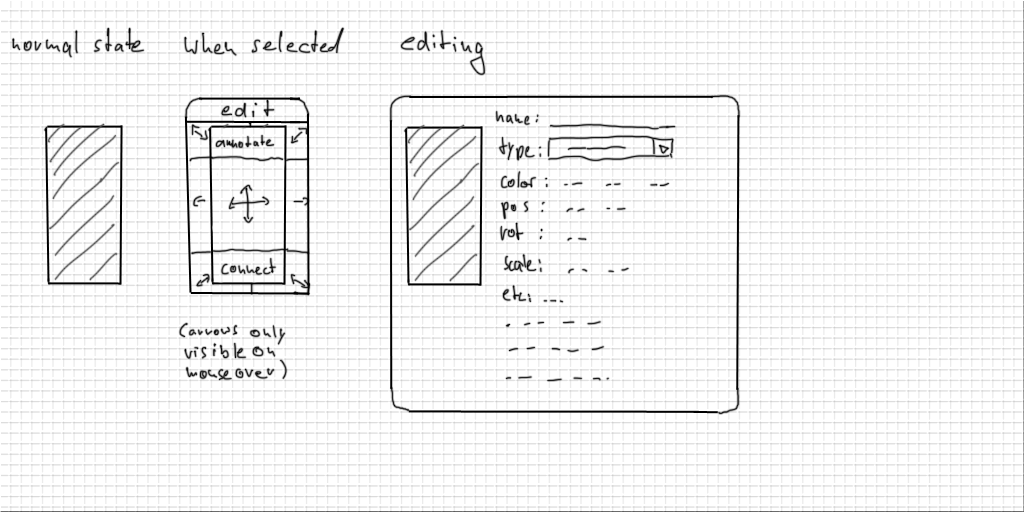 normal state
when selected
editing
edit
annotate
connect
(arrows only
visible on
mouseover)
name:
type:
color:
pos :
rot :
scale:
etc: